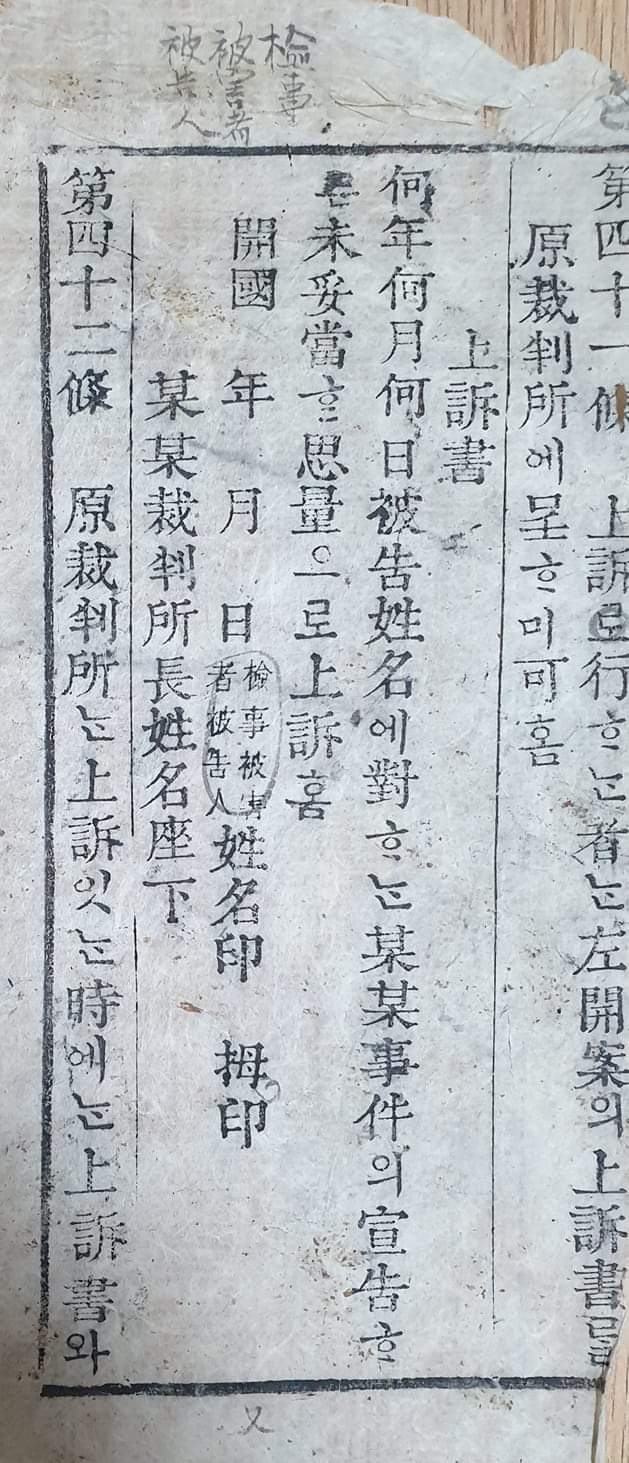 檢事
被害者
被告人
第四十一條 上訴로行ᄒᆞᄂᆞᆫ者ᄂᆞᆫ左開案의上訴書ᄅᆞᆯ
原裁判所에呈ᄒᆞ미可홈
上訴書
何年何月何日被告姓名에對ᄒᆞᄂᆞᆫ某某事件의宣告ᄒᆞ
未妥當ᄒᆞᆫ思量으로上訴홈
開國 年 月 日 檢事被害者被告人 姓名印 拇印
某某裁判所長姓名座下
第四十二條 原裁判所ᄂᆞᆫ上訴잇ᄂᆞᆫ時에ᄂᆞᆫ上訴書와
又